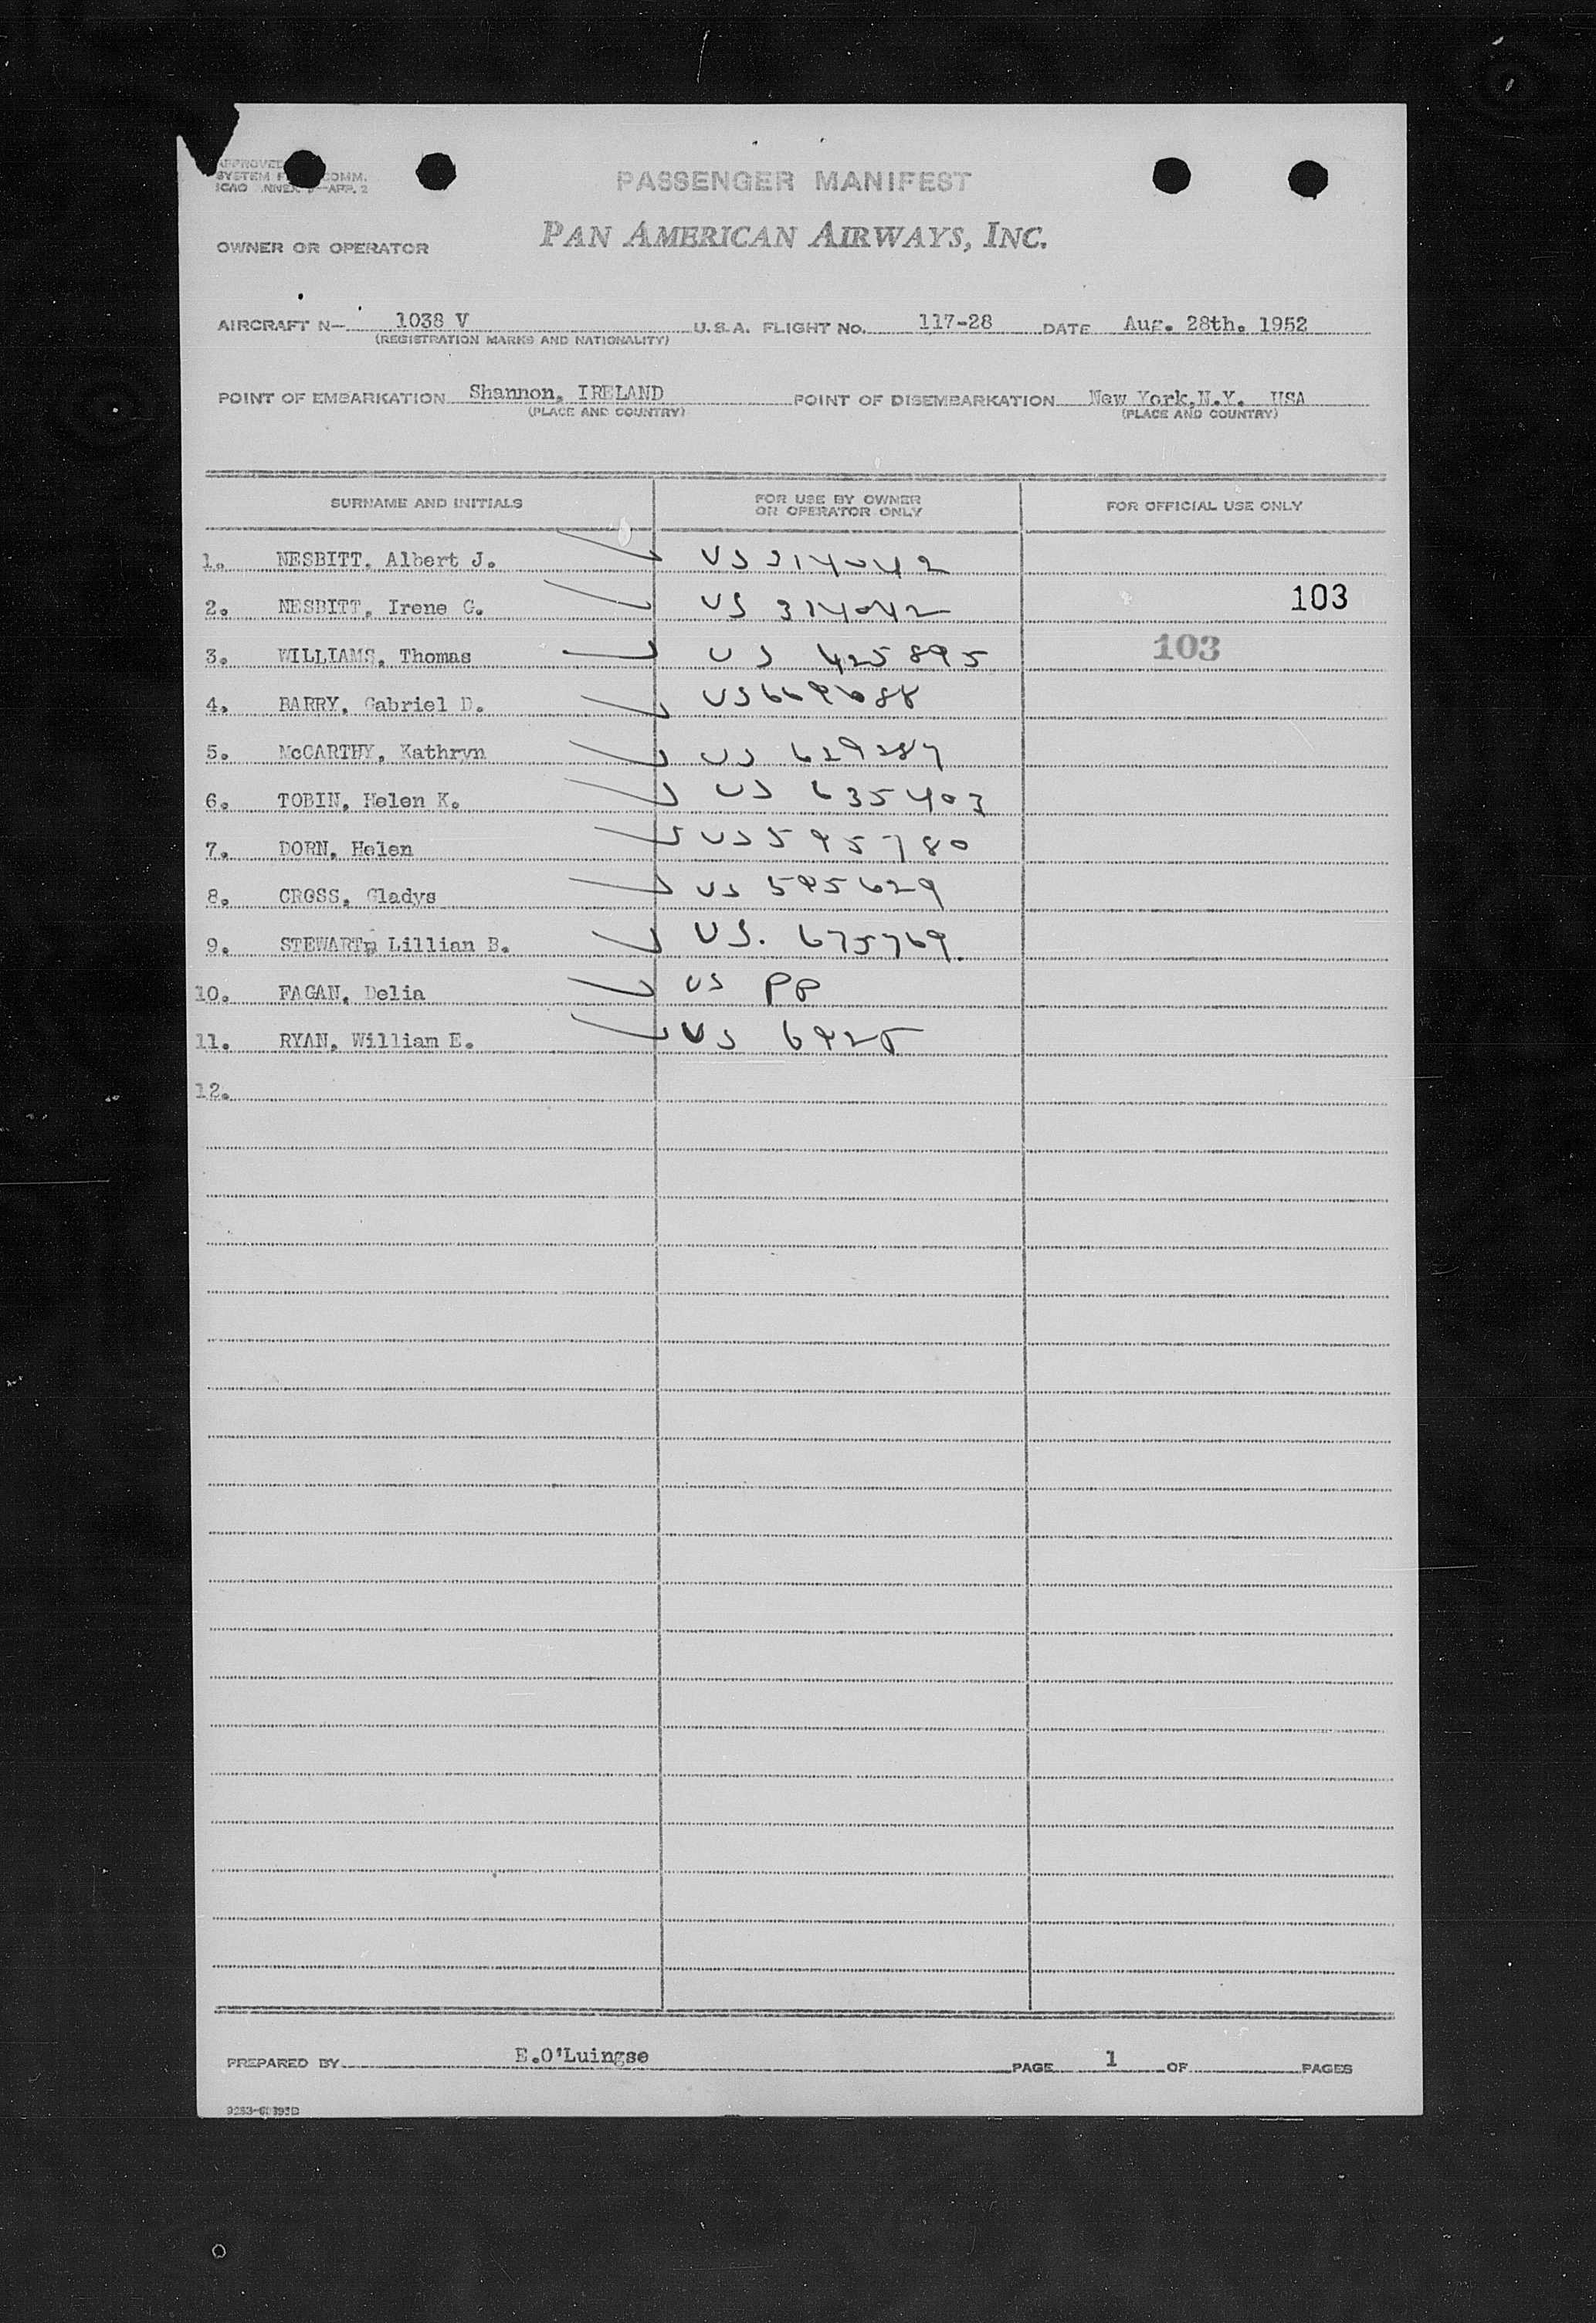 APPROVED
SYSTEM COMM.
ICAO ANNEX 9—APP. 2
PASSENGER MANIFEST
OWNER OR OPERATOR PAN AMERICAN AIRWAYS, INC.
AIRCRAFT N— 1038 V U.S.A. FLIGHT NO. 117-28 DATE Aug. 28th. 1952
(REGISTRATION MARKS AND NATIONALITY)
POINT OF EMBARKATION Shannon, IRELAND POINT OF DISEMBARKATION New York,N.Y. USA
(PLACE AND COUNTRY) (PLACE AND COUNTRY)
SURNAME AND INITIALS FOR USE BY OWNER OR OPERATOR ONLY FOR OFFICIAL USE ONLY
1. NESBITT, Albert J. US 314042
2. NESBITT, Irene G. US 314042 103
3. WILLIAMS, Thomas US 425895 103
4. BARRY, Gabriel D. US 669688
5. McCARTHY, Kathryn US 629287
6. TOBIN, Helen K. US 635403
7. DORN, Helen US 595780
8. CROSS, Gladys US 595629
9. STEWART, Lillian B. US. 675769.
10. FAGAN, Delia US PP
11. RYAN, William E. US 6925
12.
PREPARED BY E.O'Luingse PAGE 1 OF PAGES